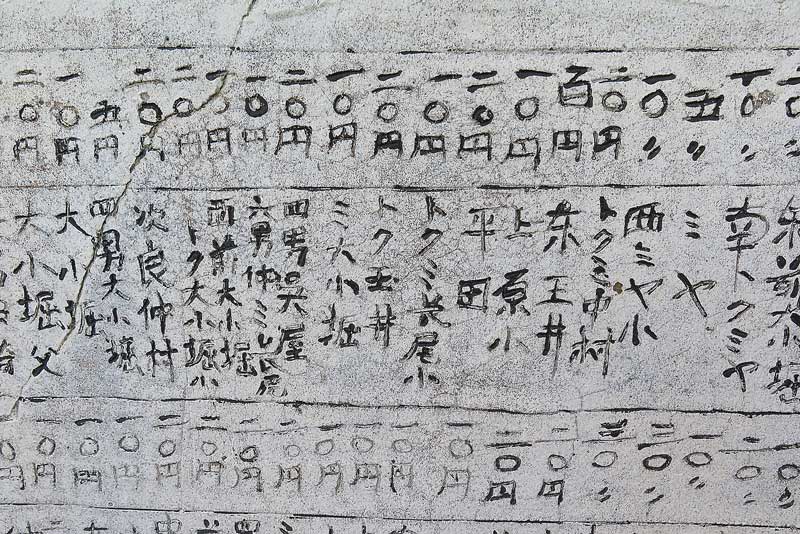 二〇〃 前大小堀
一〇〃 南トクミヤ
五〃 ミヤ
一〇〃 西ミヤ小
二〇円 トクミ中村
百円 东玉井
一〇円 上原小
二〇円 平田
一〇円 トクミ长尾小
二〇円 トク玉井
一〇円 ミ大小堀
二〇円 四男呉屋
一〇円 六男仲ミ
一〇円 西前大小堀
二〇円 トク大小堀小
二〇円 次良仲村
五円 四男大小堀
一〇円 大小堀
二〇円 大小堀父
一〇〃
一〇〃
二〇〃
二〇〃
三〇〃
一〇円
二〇円
一〇円
一〇円
一〇円
一〇円
一〇円
一〇円
二〇円
二〇円
一〇円
一〇円
一〇円